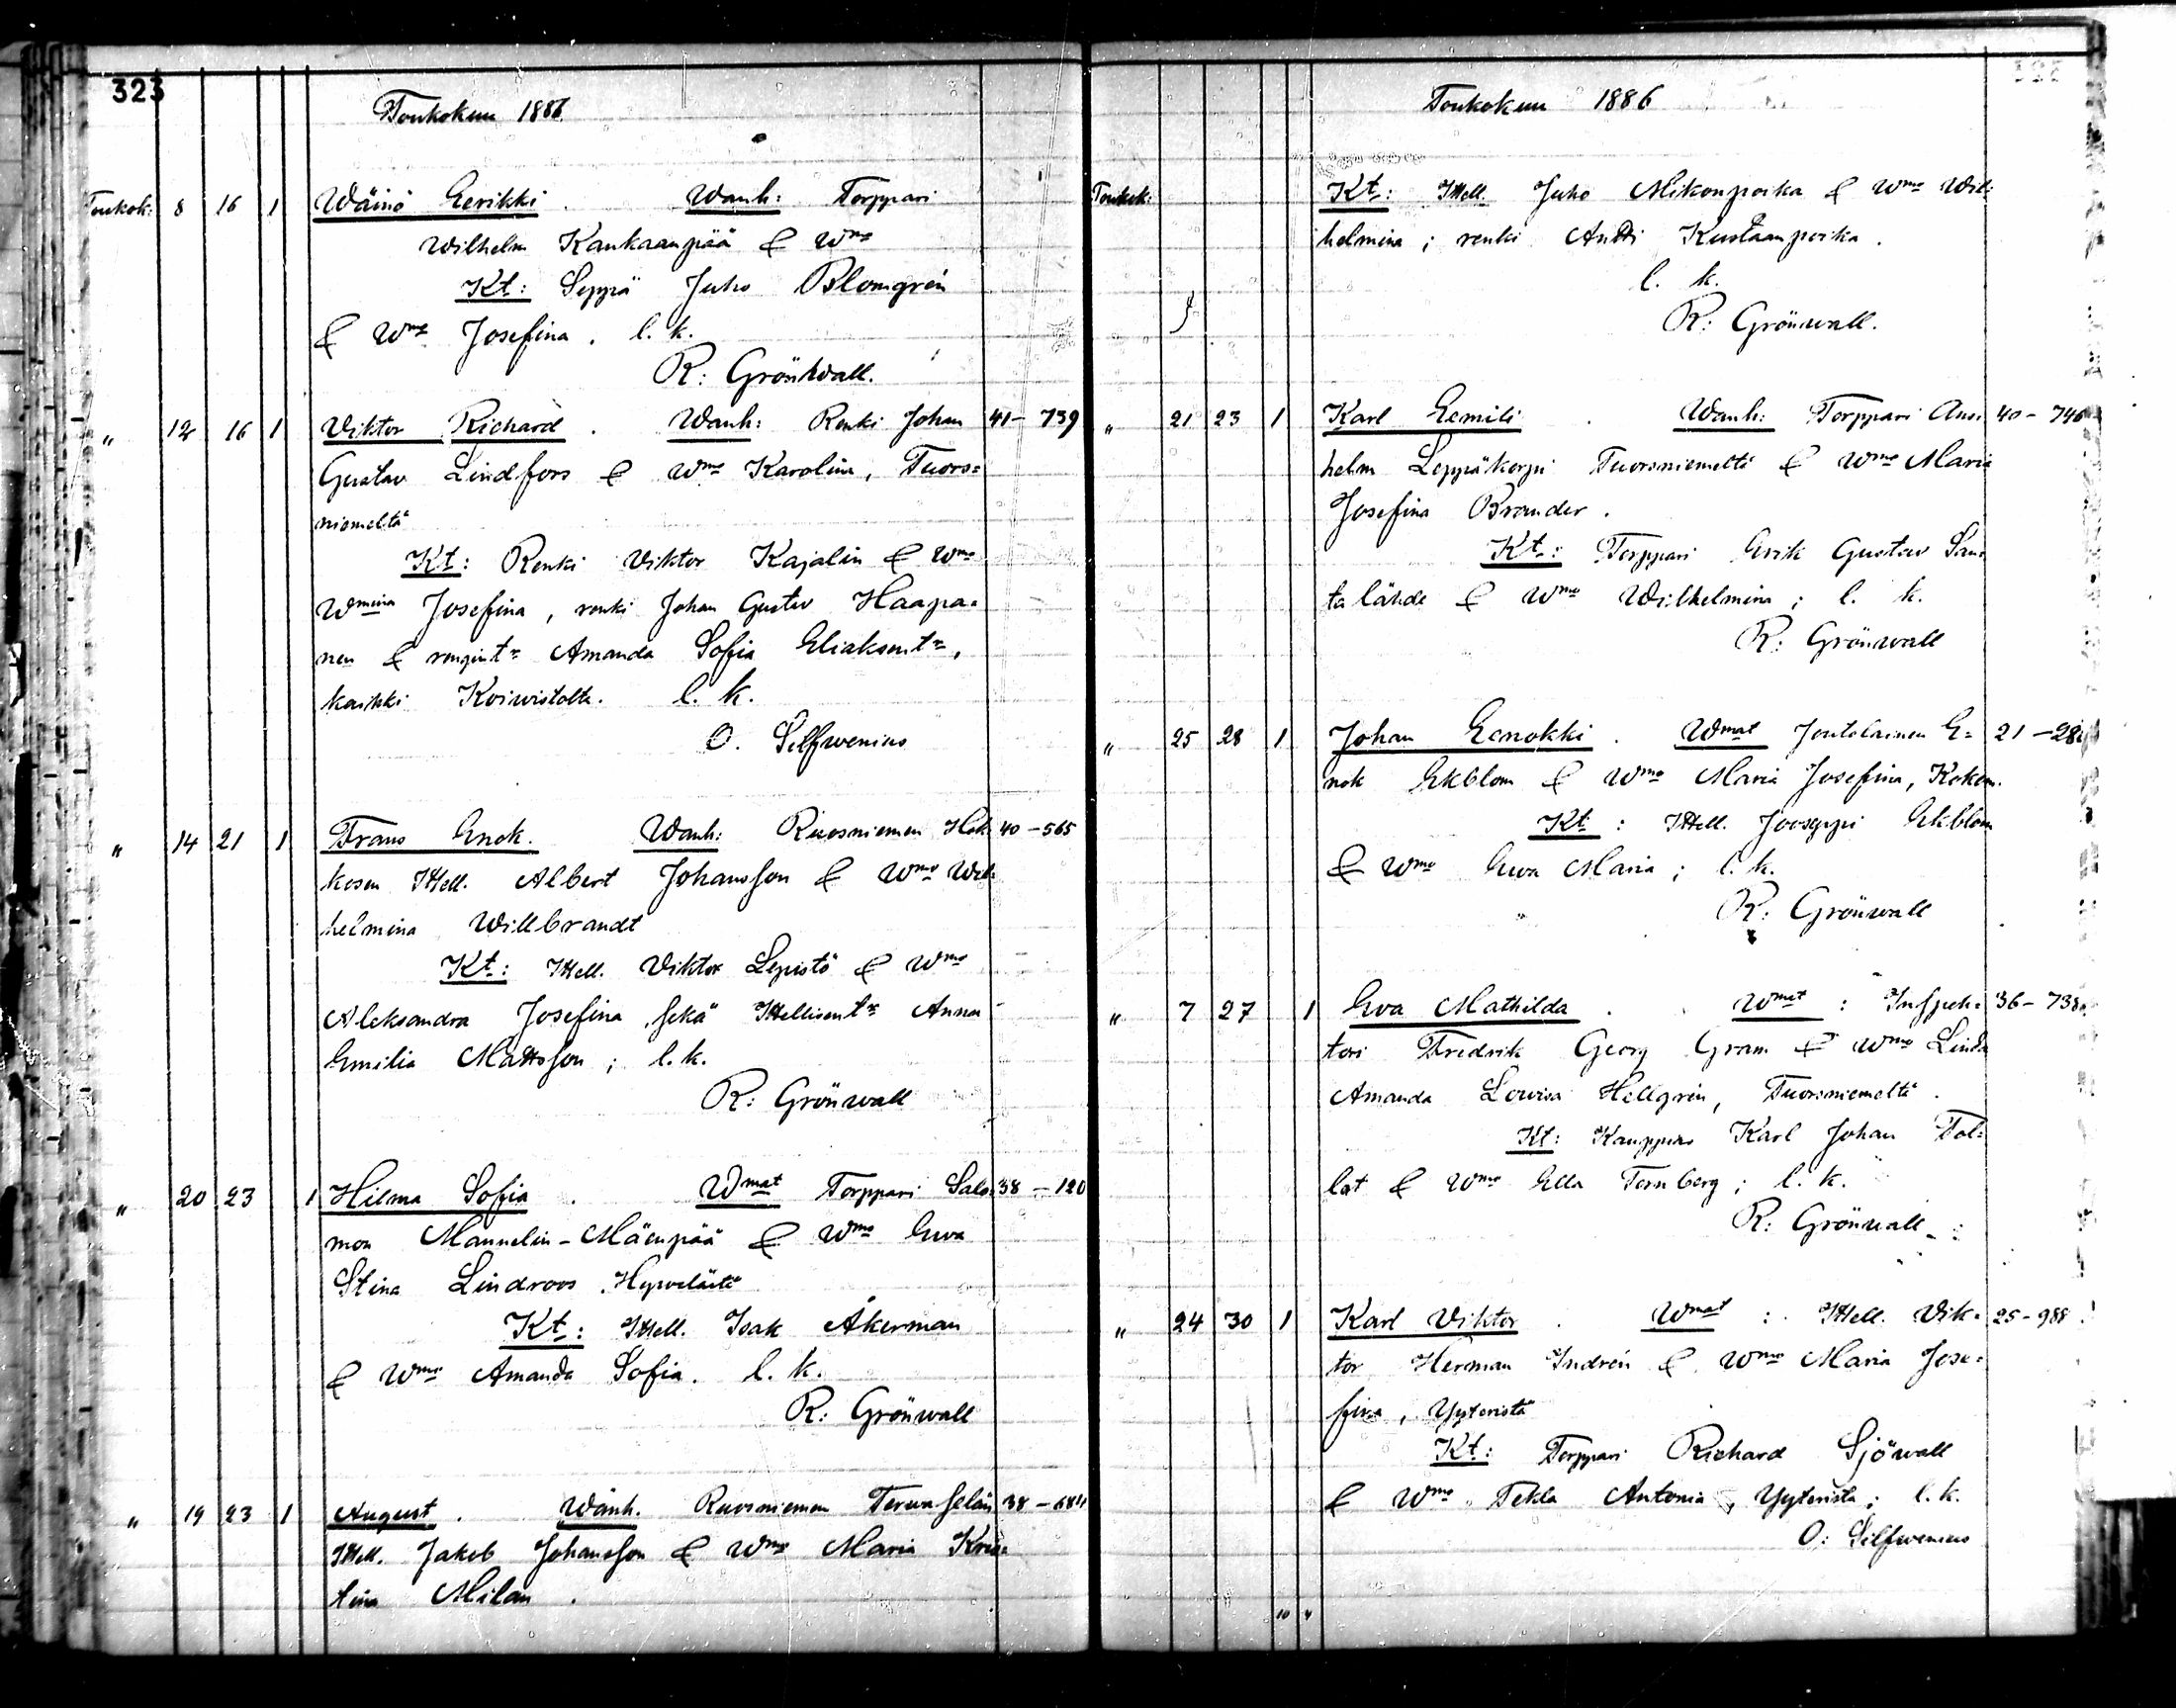 323
Toukokuu 1886.
Toukok: 8 16 1 Wäinö Eerikki . Wanh: Torppari
Wilhelm Kankaanpää & Wmo
Kt: Seppä Juho Blomgrén
& Wmo Josefina . l. k.
R: Grönwall.
" 12 16 1 Viktor Richard . Wanh: Renki Johan 41 - 739
Gustav Lindfors & Wmo Karolina, Tuors=
niemeltä
Kt: Renki Viktor Kajalin & Wmo
Wmina Josefina, renki Johan Gustav Haapa=
nen & rengint:r Amanda Sofia Eliaksent:r,
kaikki Koivistolta. l. k.
O. Silfwenius
" 14 21 1 Frans Enok. Wanh: Ruosniemen Hak 40 - 565
kosen Ittell. Albert Johansson & Wmo Wil
helmina Willbrandt
Kt: Ittell. Viktor Lepistö & Wmo
Aleksandra Josefina sekä Ittellisent:r Anna
Emilia Mattsson ; l. k.
R: Grönwall
" 20 23 1 Hilma Sofia . Wmat Torppari Salo= 38 - 120
mon Mannelin-Mäenpää & Wmo Ewa
Stina Lindroos . Hyvelästä
Kt: Ittell. Isak Åkerman
& Wmo Amanda Sofia. l. k.
R: Grönwall
" 19 23 1 August . Wanh. Ruosniemen Terwaselän 38 - 684
Ittell. Jakob Johansson & Wmo Maria Kris=
tina Milan .
Toukokuu 1886
Toukok: Kt: Ittell. Juho Mikonpoika & Wmo Wil:
helmina ; renki Antti Kustaanpoika .
l. k.
R: Grönwall.
" 21 23 1 Karl Eemili . Wanh: Torppari Ans= 40 - 746
helm Leppäkorpi Tuorsniemeltä & Wmo Maria
Josefina Brander .
Kt: Torppari Erik Gustav San=
talähde & Wmo Wilhelmina ; l. k.
R: Grönwall
" 25 28 1 Johan Eenokki . Wmat Joutolainen E= 21 - 28
nok Ekblom & Wmo Maria Josefina, Kokem.
Kt : Ittell. Jooseppi Ekblom
& Wmo Ewa Maria ; l. k.
R: Grönwall
" 7 27 1 Eva Mathilda . Wmat : Inspek= 36 - 738
tori Fredrik Georg Gram & Wmo Linda
Amanda Lovisa Hellgrén, Tuorsniemeltä .
Kt: Kauppias Karl Johan Tal=
lat & Wmo Ella Ternberg ; l. k.
R: Grönwall
" 24 30 1 Karl Viktor . Wmat : Ittell. Vik= 25 - 988
tor Herman Indrén & Wmo Maria Jose=
fina , Yyteristä
Kt: Torppari Richard Sjöwall
& Wmo Tekla Antonia, Yyteristä ; l. k.
O: Silfwenius
10 4